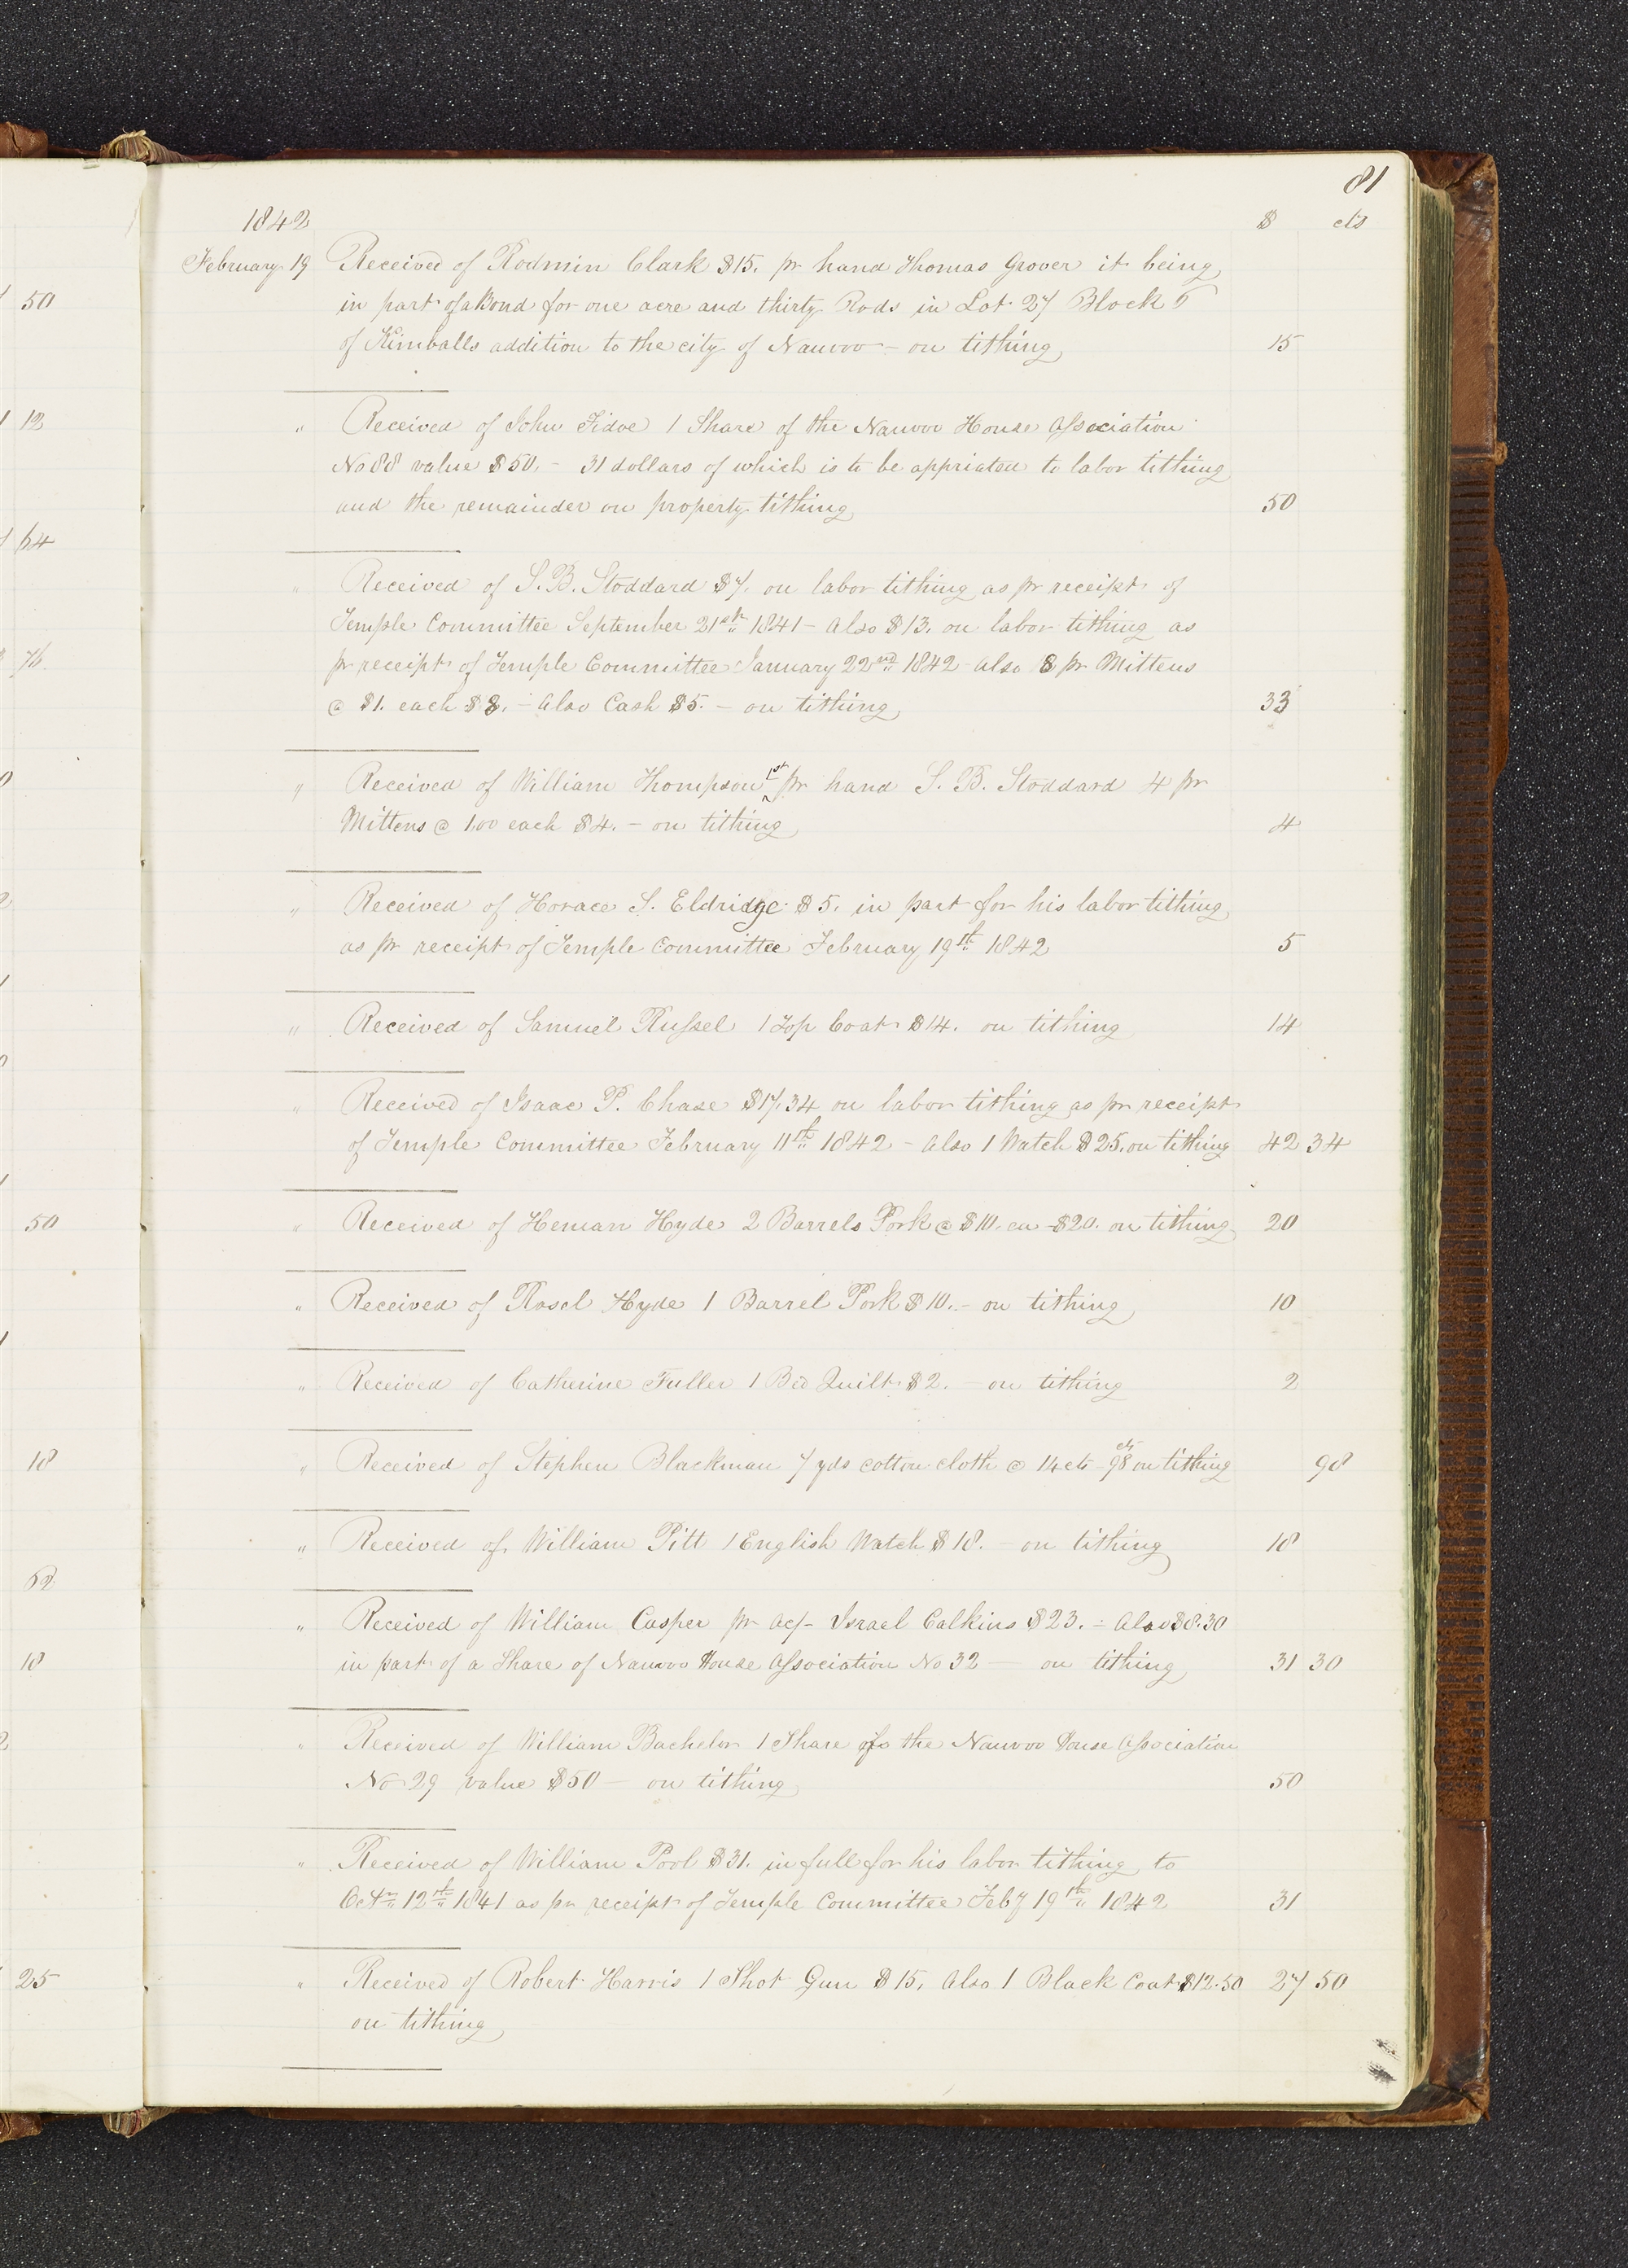 81
1842 $ cts
February 19 Received of Rodmin Clark $15. pr hand Thomas Grover it being
in part of a Bond for one acre and thirty Rods in Lot 27 Block 5
of Kimballs addition to the city of Nauvoo - on tithing 15
" Received of John Fidoe 1 Share of the Nauvoo House Association
No 88 value $50. - 31 dollars of which is to be appriated to labor tithing
and the remainder on property tithing 50
" Received of S. B. Stoddard $7. on labor tithing as pr receipt of
Temple Committee September 21st 1841 - Also $13. on labor tithing as
pr receipt of Temple Committee January 22nd 1842 - Also 8 pr Mittens
@ $1. each $8. - Also Cash $5. - on tithing 33
" Received of William Thompson 1st pr hand S. B. Stoddard 4 pr
Mittens @ 1.00 each $4. - on tithing 4
" Received of Horace S. Eldridge $5. in part for his labor tithing
as pr receipt of Temple Committee February 19th 1842 5
" Received of Samuel Russel 1 Top Coat $14. on tithing 14
" Received of Isaac P. Chase $17.34 on labor tithing as pr receipt
of Temple Committee February 11th 1842 - Also 1 Watch $25. on tithing 42 34
" Received of Heman Hyde 2 Barrels Pork @ $10. ea - $20. on tithing 20
" Received of Rosel Hyde 1 Barrel Pork $10. - on tithing 10
" Received of Catherine Fuller 1 Bed Quilt $2. - on tithing 2
" Received of Stephen Blackman 7 yds cotton cloth @ 14 cts - 98 cts on tithing 98
" Received of William Pitt 1 English Watch $18. - on tithing 18
" Received of William Casper pr ac/- Israel Calkins $23. - Also $8.30
in part of a Share of Nauvoo House Association No 32 - on tithing 31 30
" Received of William Bachelor 1 Share of the Nauvoo House Association
No 29 value $50 - on tithing 50
" Received of William Pool $31. in full for his labor tithing to
Octr 12th 1841 as pr receipt of Temple Committee Feby 19th 1842 31
" Received of Robert Harris 1 Shot Gun $15. Also 1 Black Coat $12.50 27 50
on tithing
50
12
64
50
18
62
18
25